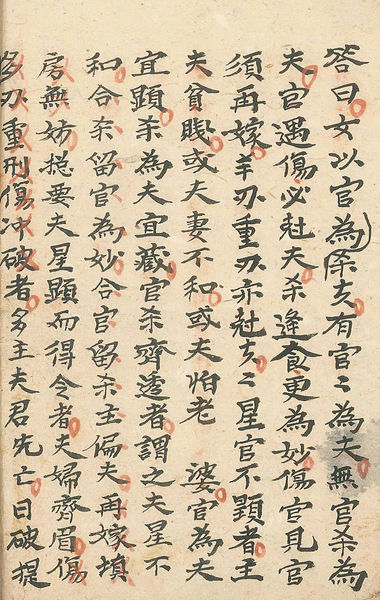 答曰女以官為夫有官官為夫無官杀為
夫官遇傷必尅夫杀逢食更為妙傷官見官
須再嫁羊刃重刃亦尅夫夫星官不顕者主
夫貧賤或夫妻不和或夫怕老 婆官為夫
宜顕杀為夫宜藏官杀齊透者謂之夫星不
和合杀留官為妙合官留杀主偏夫再嫁填
房無妨搃要夫星顕而得令者夫婦齊眉傷
多刃重刑傷冲破者多主夫君先亡曰破提